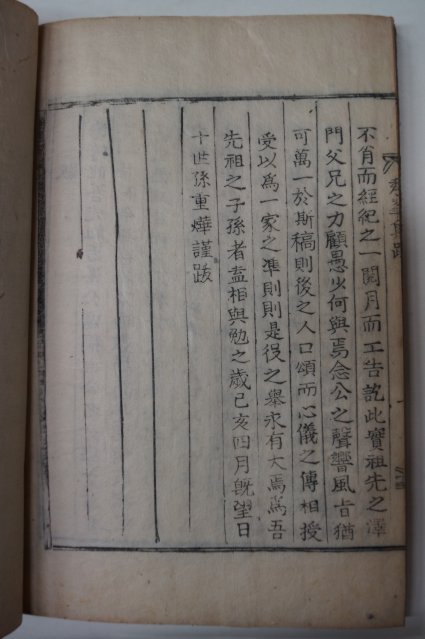 不肖而經紀之一閱月而工告訖此實祖先之澤
門父兄之力顧愚少何與焉念公之聲響風旨猶
可萬一於斯稿則後之人口頌而心儀之傳相授
受以爲一家之準則則是役之擧永有大焉爲吾
先祖之子孫者盍相與勉之歲己亥四月旣望日
十世孫重燁謹跋